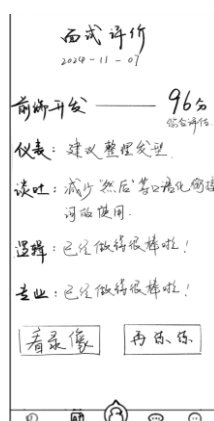 面试评价
2024-11-07
前端开发 —— 96分
综合评估
仪表：建议整理发型
谈吐：减少“然后”等口语化衔接
词的使用.
逻辑：已经做得很棒啦！
专业：已经做得很棒啦！
看录像
再练练